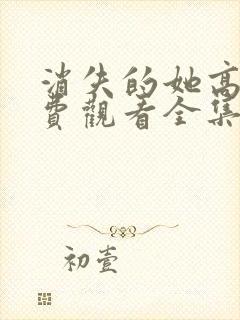 消失的她高
費觀看全集
初壹